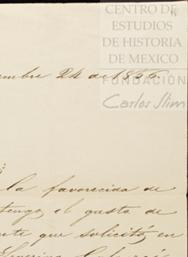 CENTRO DE
ESTUDIOS
DE HISTORIA
DE MEXICO
FUNDACIÓN
Carlos Slim
24 de 18
la favorecida de
tengo el gusto de
que solicitó en